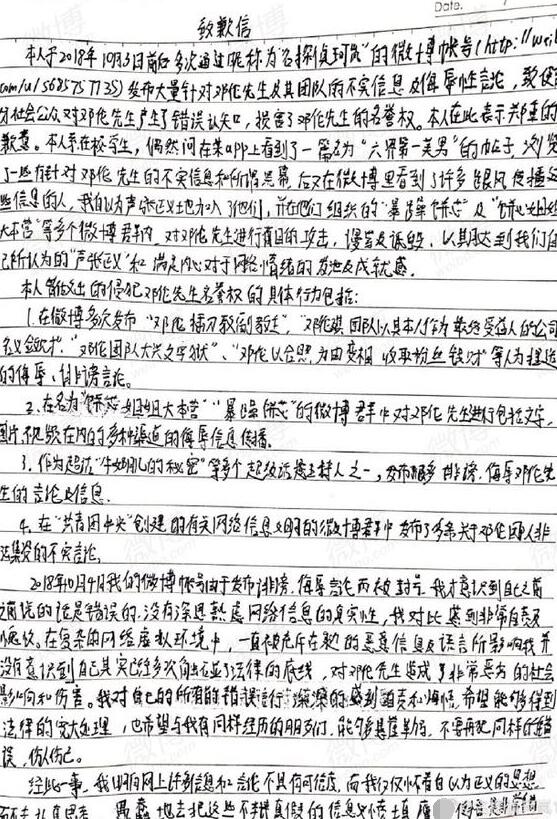 Date.
致歉信
本人于2018年10月3日前后多次通过昵称为"名探侦珂岚"的微博帐号(http://wei
com/u/5685757735)发布大量针对邓伦先生及其团队的不实信息及侮辱性言论,致使
社会公众对邓伦先生产生了错误认知,损害了邓伦先生的名誉权。本人在此表示郑重的
歉意。本人系在校学生,偶然间在某app上看到了一篇名为"六界第一美男"的帖子,浏览
了一些有针对邓伦先生的不实信息和所谓黑幕,后又在微博里看到了许多跟风传播这
些信息的人,我自以为声张正义地加入了他们,并在他们组织的
大本营"等多个微博群内,对邓伦先生进行盲目的攻击,谩骂及诋毁,以其达到我们自
己所认为的"声张正义"和满足内心对于网络情绪的发泄及成就感。
本人曾做出的侵犯邓伦先生名誉权的具体行为包括:
1.在微博多次发布
名义敛财","邓伦团队大兴文字狱"、"邓伦以合照为由变相收取粉丝钱财"等人为捏造
的侮辱、诽谤言论。
2.在名为"姐姐大本营"的微博群中对邓伦先生进行包括文字,
图片,视频在内的多种渠道的侮辱信息传播。
3.作为超话"的秘密"等多个超级话题主持人之一,发布很多诽谤、侮辱邓伦先
生的言论及信息.
4.在"共青团中央"创建的有关网络信息文明的微博群中发布了多条关于邓伦团队非
法集资的不实言论,
2018年10月4日我的微博帐号由于发布诽谤,侮辱言论而被封号,我才意识到自己之前
说的话是错误的,没有深思熟虑网络信息的真实性,我对此感到非常自责及
愧疚。在复杂的网络虚拟环境中,一直被充斥在软的恶意信息及语言所影响我并
没有意识到自己其实已经多次触碰了法律的底线,对邓伦先生造成了非常恶劣的社会
影响和伤害。我对自己的所有的错误言行深深的感到自责和悔恨,希望能够得到
法律的宽大处理,也希望与我有同样经历的朋友们,能够甚重举例,不要再犯同样的错
误,伤人伤己。
经此一事,我明白网上许多信息和言论不具有可信度,而我仅仅怀着自以为正义的思想
愚蠢地去把这些不辨真假的信息